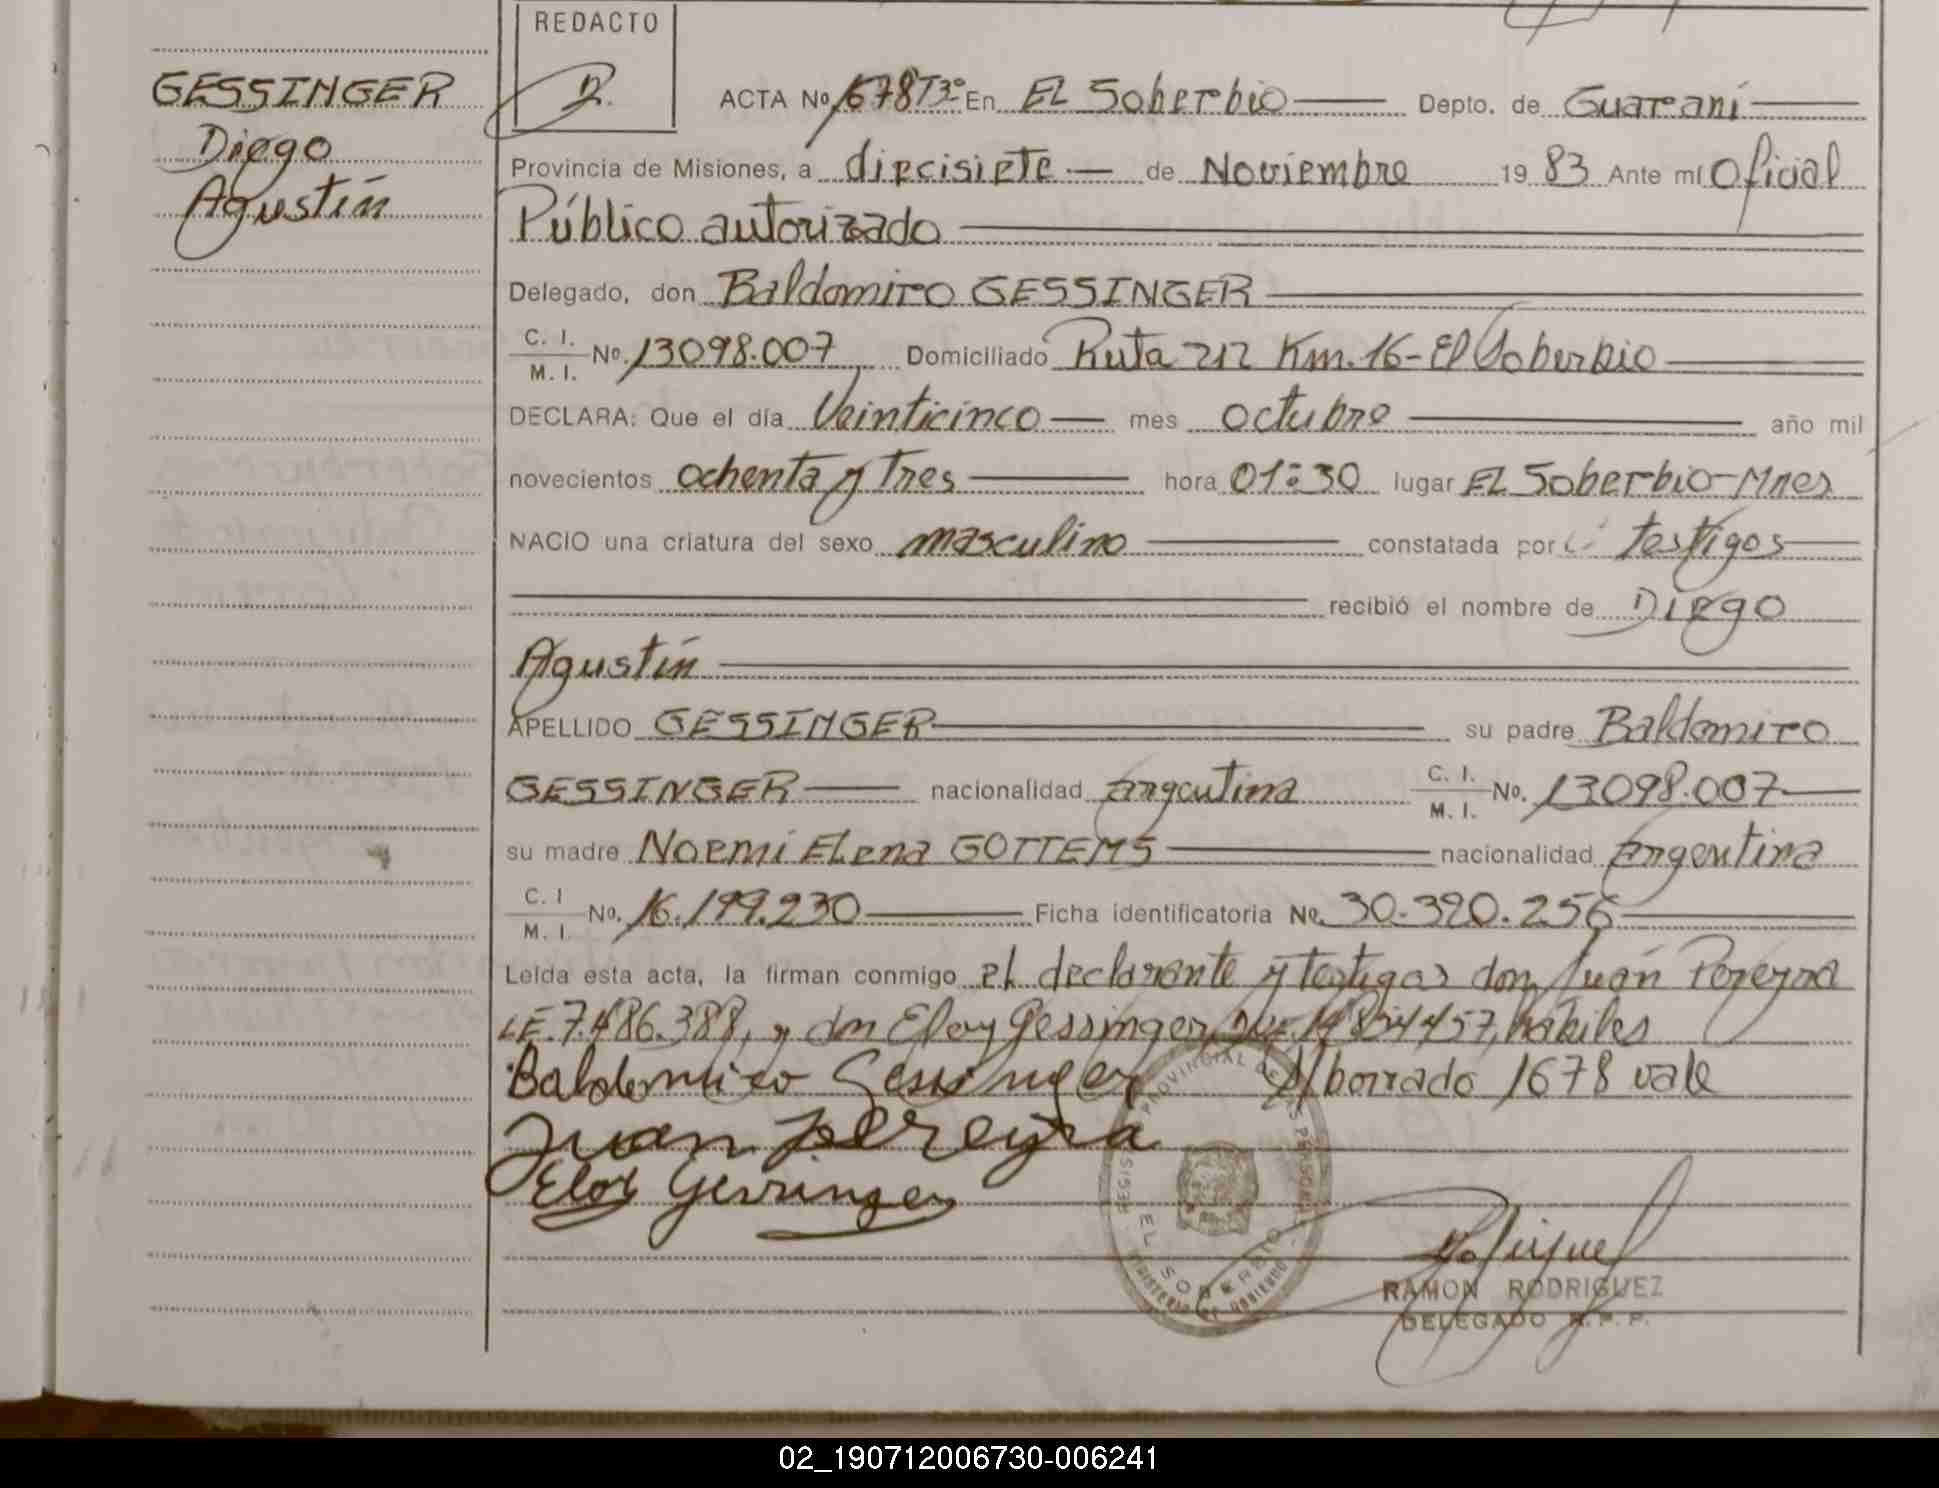 REDACTO
GESSINGER
Diego
Agustín
ACTA No 1678 T3º En EL Soberbio Depto. de Guaraní
Provincia de Misiones, a diecisiete de Noviembre 19 83 Ante mí Oficial
Público autorizado
Delegado, don Baldomiro GESSINGER
C. I.
M. I. No. 13098.007 Domiciliado Ruta 212 Km. 16 - El Soberbio
DECLARA: Que el día Veinticinco mes octubre año mil
novecientos ochenta y tres hora 01:30 lugar EL Soberbio - Mnes
NACIO una criatura del sexo masculino constatada por testigos
recibió el nombre de Diego
Agustín
APELLIDO GESSINGER su padre Baldomiro
GESSINGER nacionalidad argentina C. I.
M. I. No. 13098.007
su madre Noemi Elena GOTTEMS nacionalidad argentina
C. I
M. I. No. 16.199.230 Ficha identificatoria No. 30.390.256
Leída esta acta, la firman conmigo el declarante y testigos don Juán Pereyra
LE. 7.486.388, y don Eloy Gessinger, habiles
Baldomiro Gessinger S/borrado 1678 vale
Juan Pereyra
Eloy Gessinger
REGISTRO PROVINCIAL DE LAS PERSONAS
EL SOBERBIO
MINISTERIO DE GOBIERNO
RAMON RODRIGUEZ
DELEGADO R. P. P.
02_190712006730-006241